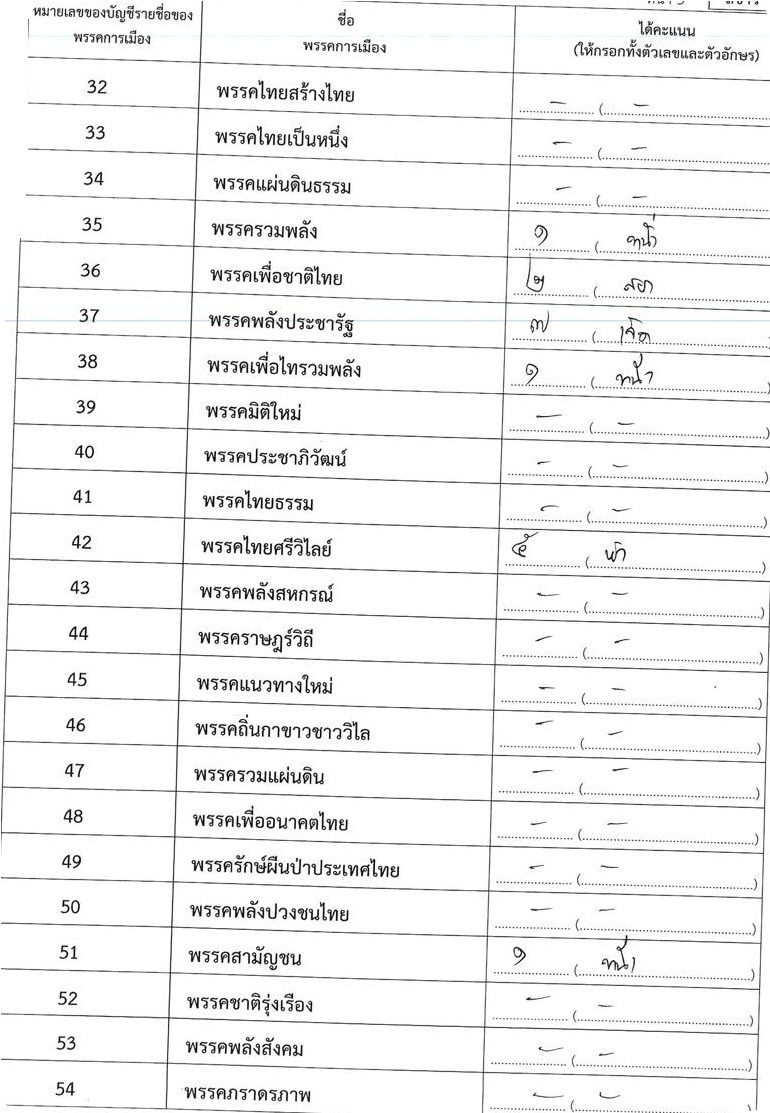 หมายเลขของบัญชีรายชื่อของ
พรรคการเมือง
ชื่อ
พรรคการเมือง
ได้คะแนน
(ให้กรอกทั้งตัวเลขและตัวอักษร)
32 พรรคไทยสร้างไทย - (-
33 พรรคไทยเป็นหนึ่ง - (-
34 พรรคแผ่นดินธรรม - (-
35 พรรครวมพลัง ๑ (
36 พรรคเพื่อชาติไทย ๒ (สอง
37 พรรคพลังประชารัฐ ๗ (เจ็ด
38 พรรคเพื่อไทรวมพลัง ๑ ( )
39 พรรคมิติใหม่ - (-)
40 พรรคประชาภิวัฒน์ - (-)
41 พรรคไทยธรรม - (-)
42 พรรคไทยศรีวิไลย์ ๕ (ห้า)
43 พรรคพลังสหกรณ์ - (-)
44 พรรคราษฎร์วิถี - (-)
45 พรรคแนวทางใหม่ - (-)
46 พรรคถิ่นกาขาวชาววิไล - (-)
47 พรรครวมแผ่นดิน - (-)
48 พรรคเพื่ออนาคตไทย - (-)
49 พรรครักษ์ผืนป่าประเทศไทย - (-)
50 พรรคพลังปวงชนไทย - (-)
51 พรรคสามัญชน ๑ ( )
52 พรรคชาติรุ่งเรือง - (-)
53 พรรคพลังสังคม - (-)
54 พรรคภราดรภาพ - (-)